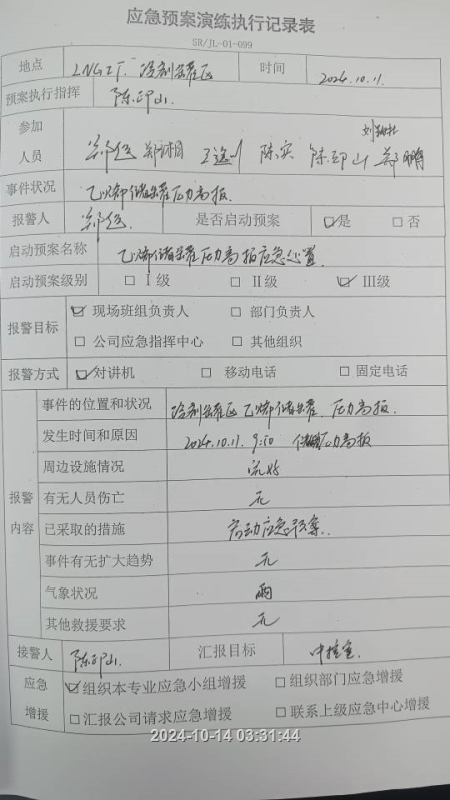 应急预案演练执行记录表
SR/JL-01-099
地点 LNG工厂 冷剂罐区 时间 2024.10.11.
预案执行指挥 陈印山.
刘
参加人员 郑 郑 王 陈实 陈印山 郑鹏
事件状况 乙烯储罐压力高报.
报警人 郑 是否启动预案 ☑是 □否
启动预案名称 乙烯储罐压力高报应急处置
启动预案级别 □Ⅰ级 □Ⅱ级 ☑Ⅲ级
报警目标 ☑现场班组负责人 □部门负责人
□公司应急指挥中心 □其他组织
报警方式 ☑对讲机 □移动电话 □固定电话
报警内容
事件的位置和状况 冷剂罐区乙烯储罐压力高报.
发生时间和原因 2024.10.11. 9:50 压力高报
周边设施情况 完好
有无人员伤亡 无
已采取的措施 启动应急预案.
事件有无扩大趋势 无
气象状况 雨
其他救援要求 无
接警人 陈印山. 汇报目标 中控室
应急增援 ☑组织本专业应急小组增援 □组织部门应急增援
□汇报公司请求应急增援 □联系上级应急中心增援
2024-10-14 03:31:44